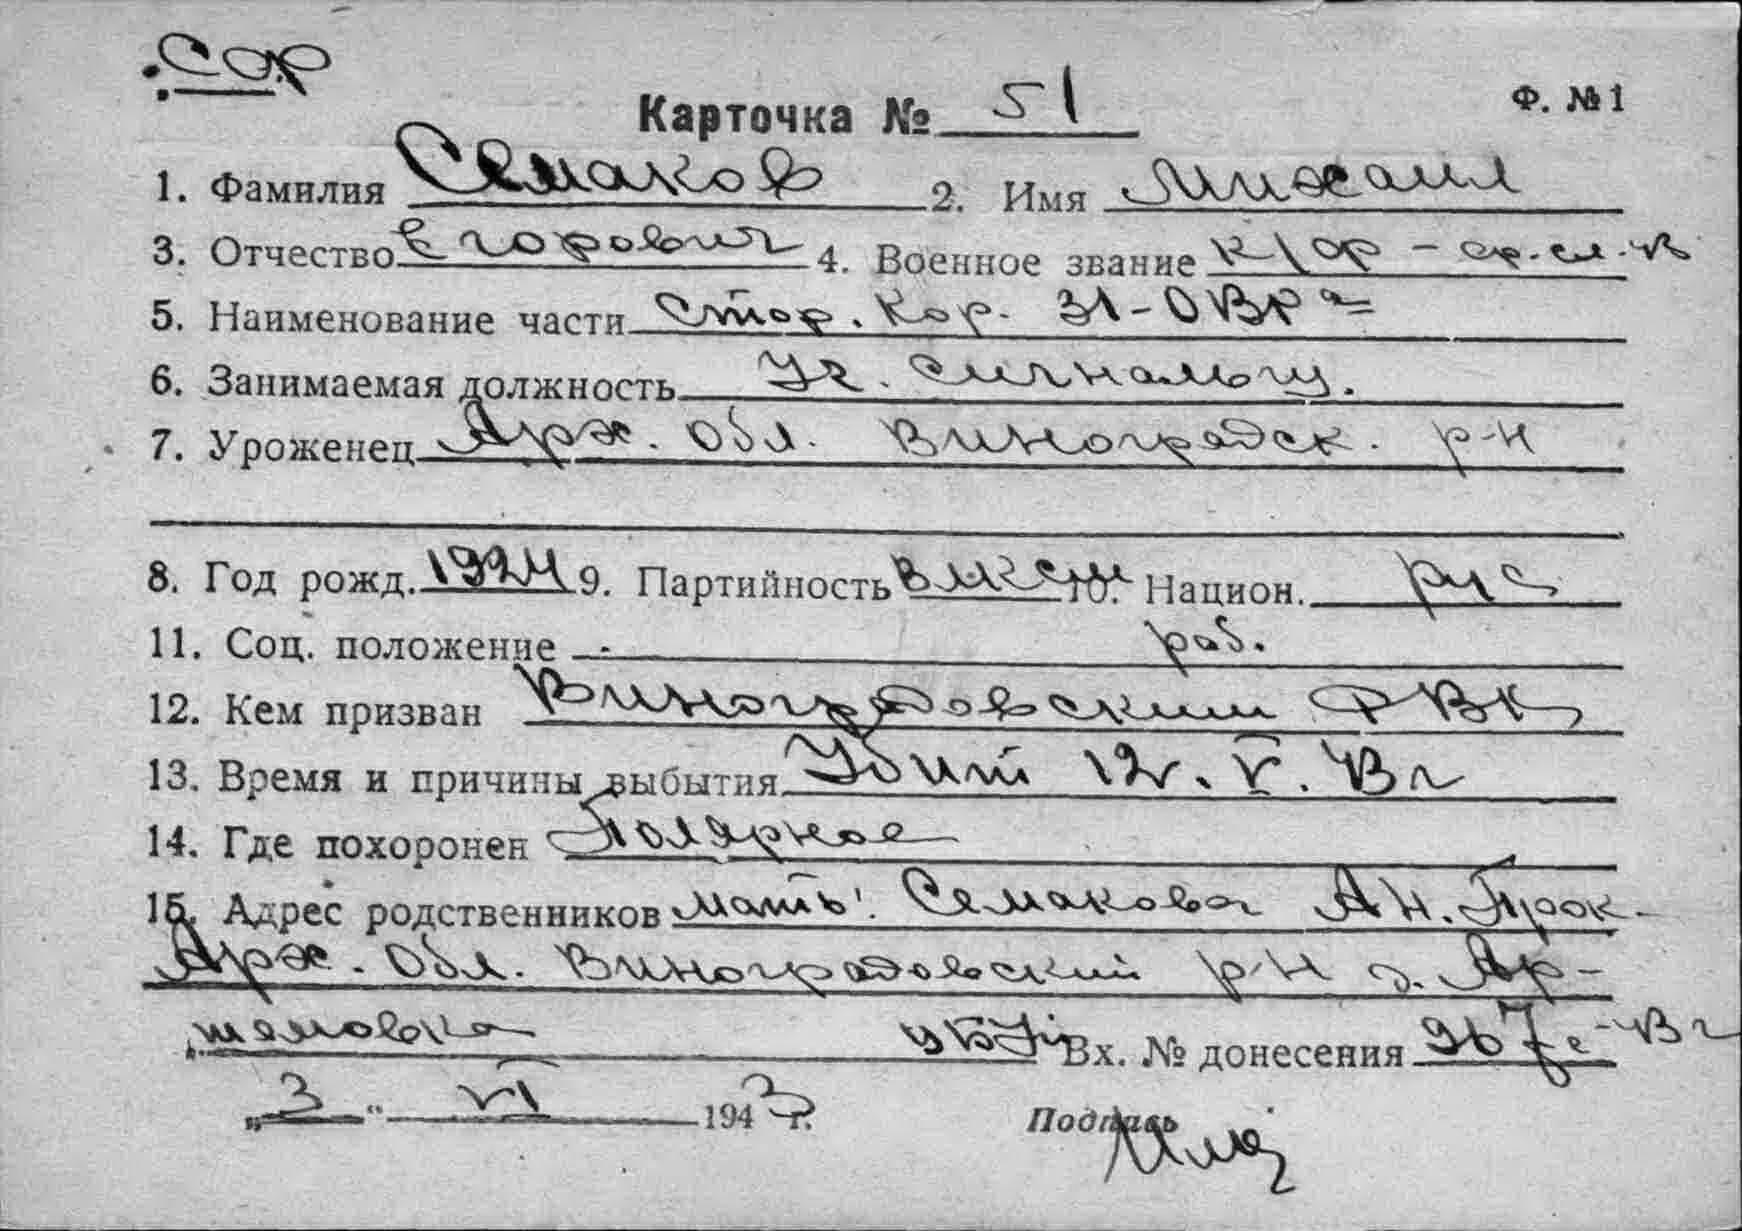 Сар
Карточка № 51 Ф. №1
1. Фамилия Семаков 2. Имя Михаил
3. Отчество Егорович 4. Военное звание к/ф - ср.сл.
5. Наименование части Стор. Кор. 31-ОВРа
6. Занимаемая должность Уч. сигнальщ.
7. Уроженец Арх. обл. Виноградск. р-н
8. Год рожд. 1924 9. Партийность ВЛКСМ 10. Национ. рус
11. Соц. положение раб.
12. Кем призван Виноградовским РВК
13. Время и причины выбытия Убит 12. V. 43 г
14. Где похоронен Полярное
15. Адрес родственников мать: Семакова Ан. Прок.
Арх. обл. Виноградовский р-н д. Ар-
темовка Вх. № донесения 43 г
„3“ VI 1943 г.
Подпись